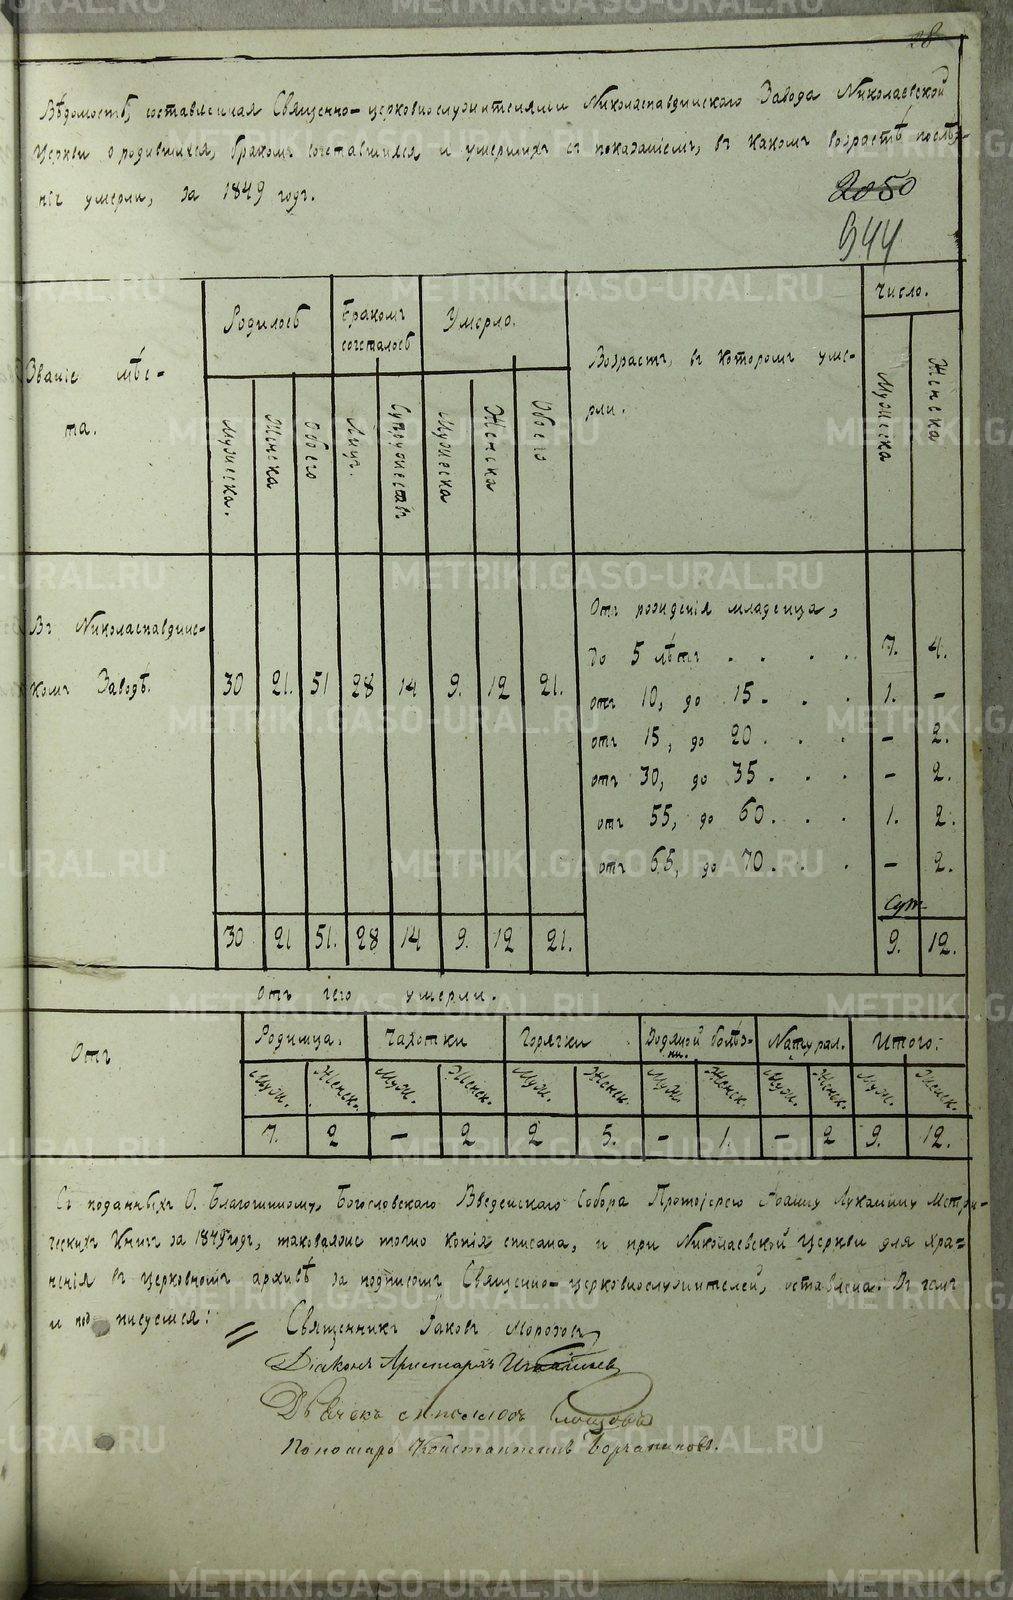 28
Вѣдомость, составленная Священно-церковнослужителями Николаепавдинского Завода Николаевской
Церкви о родившихся, бракомъ сочетавшихся, и умершихъ съ показаніемъ, въ какомъ возрастѣ послѣд-
ніе умерли, за 1849 годъ.
2050
944
Званіе мѣс-
та.
Родилось
Бракомъ
сочеталось
Умерло.
Возрастъ, въ которомъ уме-
рли.
Число.
Мужеска.
Женска
Обоего
Лицъ.
Супружествъ
Мужеска
Женска
Обоего
Мужеска
Женска
Въ Николаепавдинс-
комъ Заводѣ.
30 21. 51 28 14 9. 12 21.
Отъ рожденія младенца,
до 5 лѣтъ . . . . 7. 4.
отъ 10, до 15 . . . 1. -
отъ 15, до 20 . . . - 2.
отъ 30, до 35 . . . - 2.
отъ 55, до 60 . . . 1. 2.
отъ 65, до 70 . . . - 2.
30 21 51. 28 14 9. 12 21. 9. 12.
Отъ чего умерли.
Отъ
Родимца.
Чахотки
Горячки
Водяной болѣз-
ни.
Натурал.
Итого:
Муж. Женск. Муж. Женск. Муж. Женск. Муж. Женск. Муж. Женск. Муж. Женск.
7. 2 - 2 2 5. - 1. - 2 9. 12.
Съ поданныхъ О. Благочинному, Богословскаго Введенскаго Собора Протоіерею Іоанну Луканину Метри-
ческихъ Книгъ за 1849 годъ, таковаяже точно копія списана, и при Николаевской Церкви для хра-
ненія въ церковномъ архивѣ за подписомъ Священно-церковнослужителей, оставлена. Въ чемъ
и подписуемся:
Священникъ Іаковъ Морозовъ
Діаконъ Аристархъ
Дьячекъ
Пономарь Константинъ
METRIKI.GASO-URAL.RU